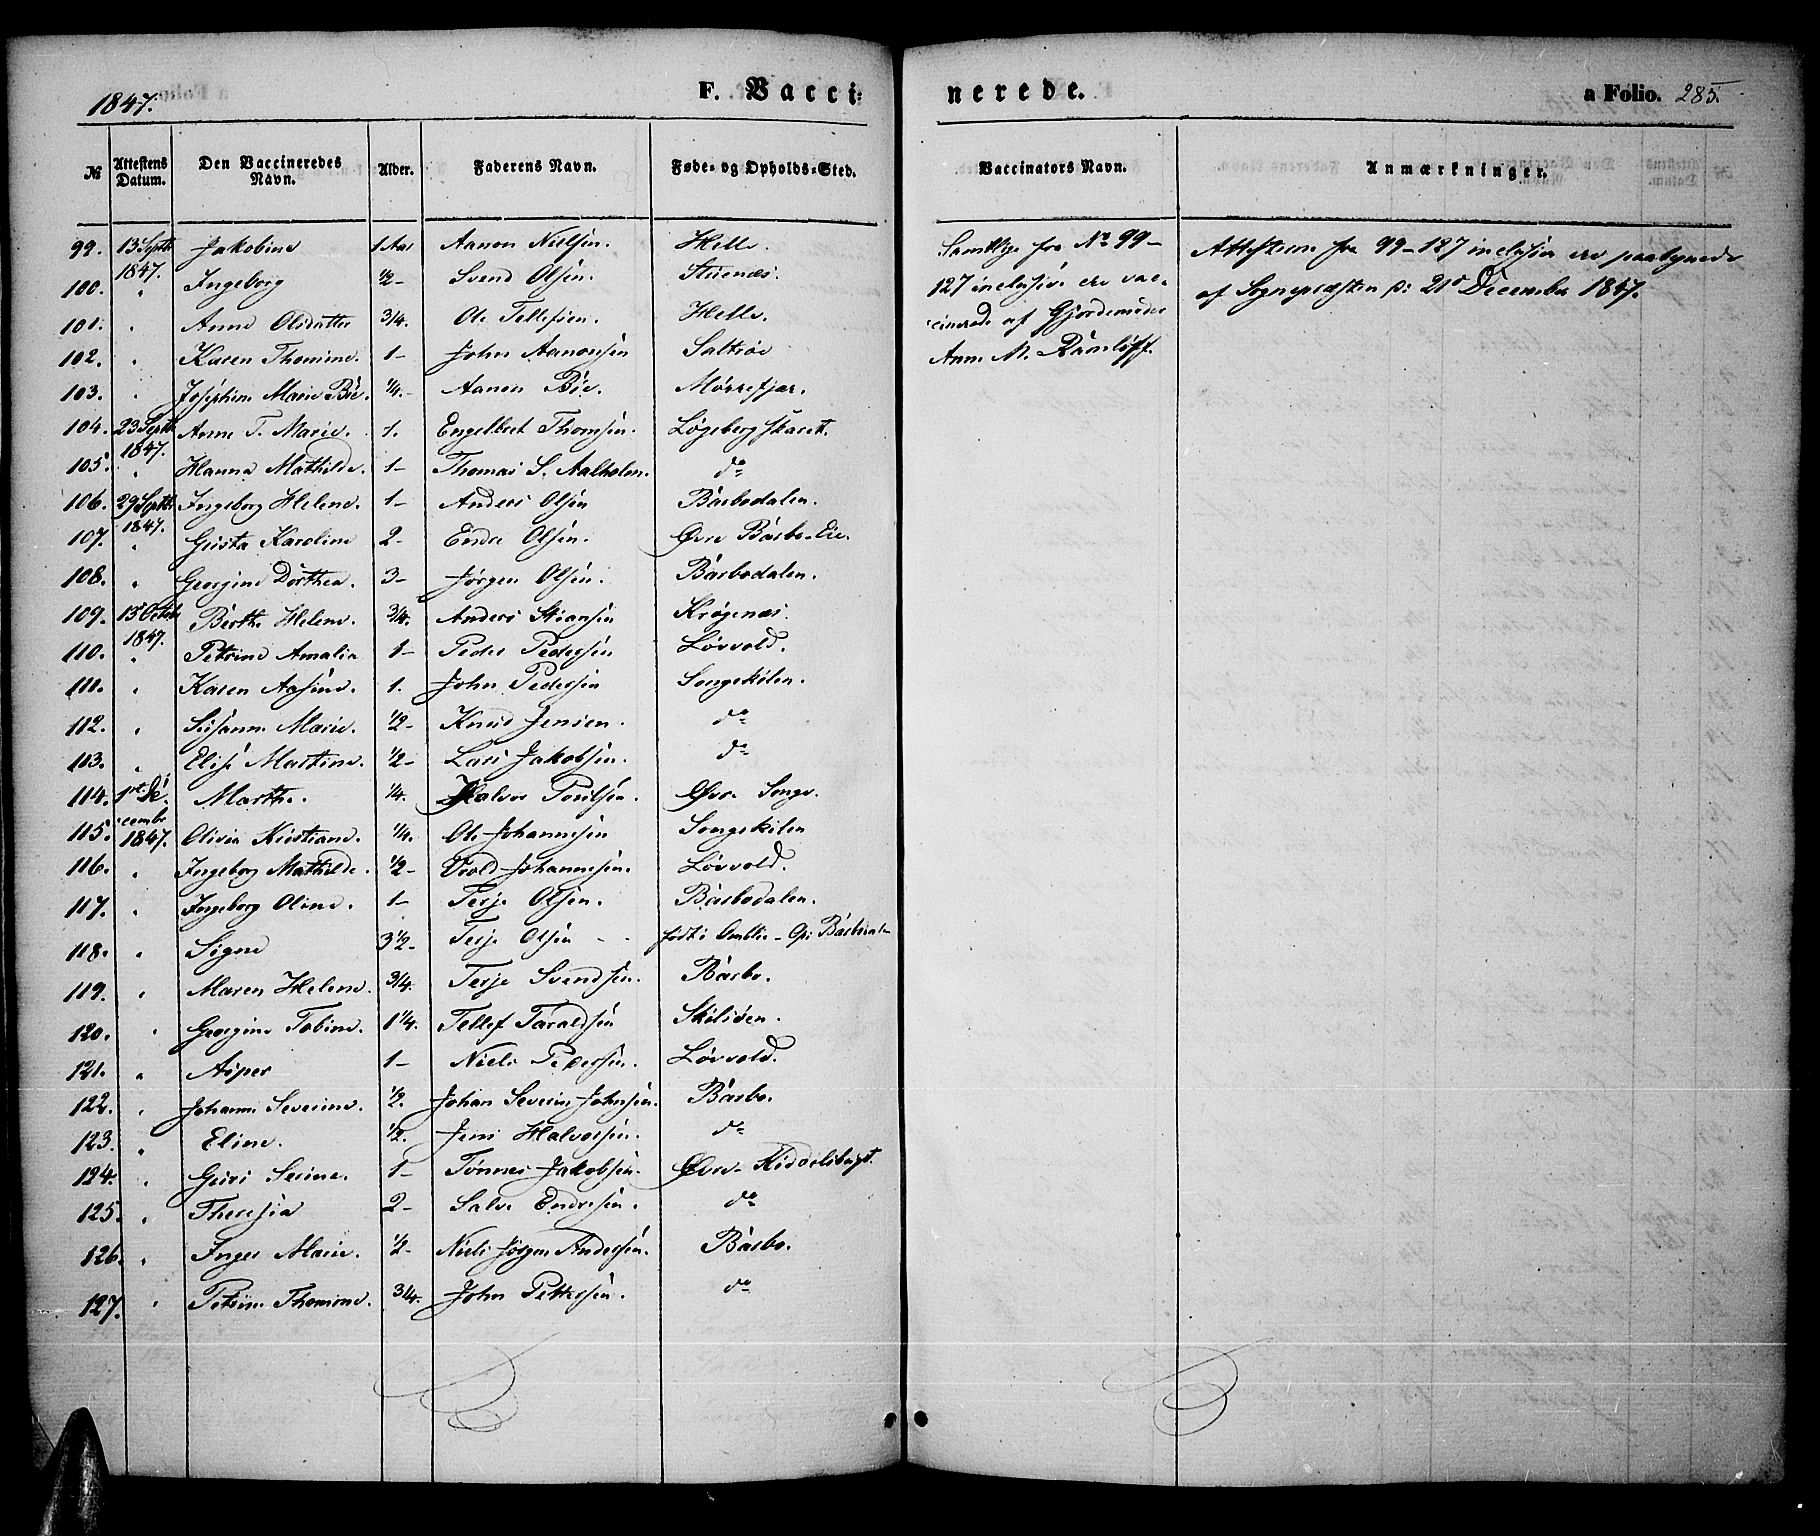 1847. F. Vacci- nerede. a Folio. 285.
№ Attestens Datum. Den Vaccineredes Navn. Alder. Faderens Navn. Føde- og Opholds-Sted. Vaccinators Navn. Anmærkninger.
99. 13 Septb. Jakobine 1 Aar Aanon Nielsen. Helle. Samtlige fra No 99- Attesterne fra 99-127 inclusive ere
100. 1847. " Ingeborg ½- Svend Olsen. Steenæs. 127 inclusive ere vac- af Sognepræsten 21 December 1847.
101. " Anne Olsdatter 3/4. Ole Tellefsen. Helle. cinerede af Gjordemoder
102. " Karen Thomine. 1- John Aanonsen Saltrøe Anne M.
103. " Josephine Marie Bie. ¼- Aanon Bie. Mørrefjær.
104. 23 Septb. Anne T. Marie. 1. Engelbret Thomsen. Løgebergskaret.
105. 1847. " Hanna Mathilde. 1- Thomas S. Aalholm. do
106. 29 Septb. Ingeborg Helene. 1- Anders Olsen Barbodalen.
107. 1847. " Gusta Karoline 2- Endre Olsen. Øvre Barbo-Eie.
108. " Georgine Dorthea. 3- Jørgen Olsen. Barbodalen.
109. 13 Octob. Berthe Helene. 3/4. Anders Stiansen Krøgenæs.
110. 1847. " Petrine Amalia 1- Peder Pedersen Løvvold.
111. " Karen Aasine. 1. John Pedersen Songekilen.
112. " Susanne Marie. ½- Knud Jensen. do
113. " Elise Martine. ½- Lars Jakobsen. do
114. 1ste De- Marthe. ¼. Halvor Poulsen. Øvre Songe.
115. cembr 1847. Olivia Kristiane. ¼. Ole Johannesen Songekilen
116. " Ingeborg Mathilde. ½- Vrold Johannesen. Løvvold.
117. " Ingeborg Oline. 1- Terje Olsen. Barbodalen.
118. " Signe 3½- Terje Olsen - - født i Omblie - Op: Barbodalen
119. " Maren Helene. 3/4. Terje Svendsen. Barbo.
120. " Georgine Tobine. 1¼. Tellef Taraldsen Skilsøen.
121. " Asper 1- Niels Pedersen. Løvvold.
122. " Johanne Severine. ½. Johan Severin Johnsen. Barbo.
123. " Eline. ½. Jens Halvorsen. do
124. " Guri Serine. 1- Tønnes Jakobsen. Øvre Kiddelsbugt.
125. " Theresia 2- Salve Endresen. do
126. " Inger Marie. ½- Niels Jørgen Andersen. Barbo.
127. " Petrine Thomine. 3/4. John Pettersen. do